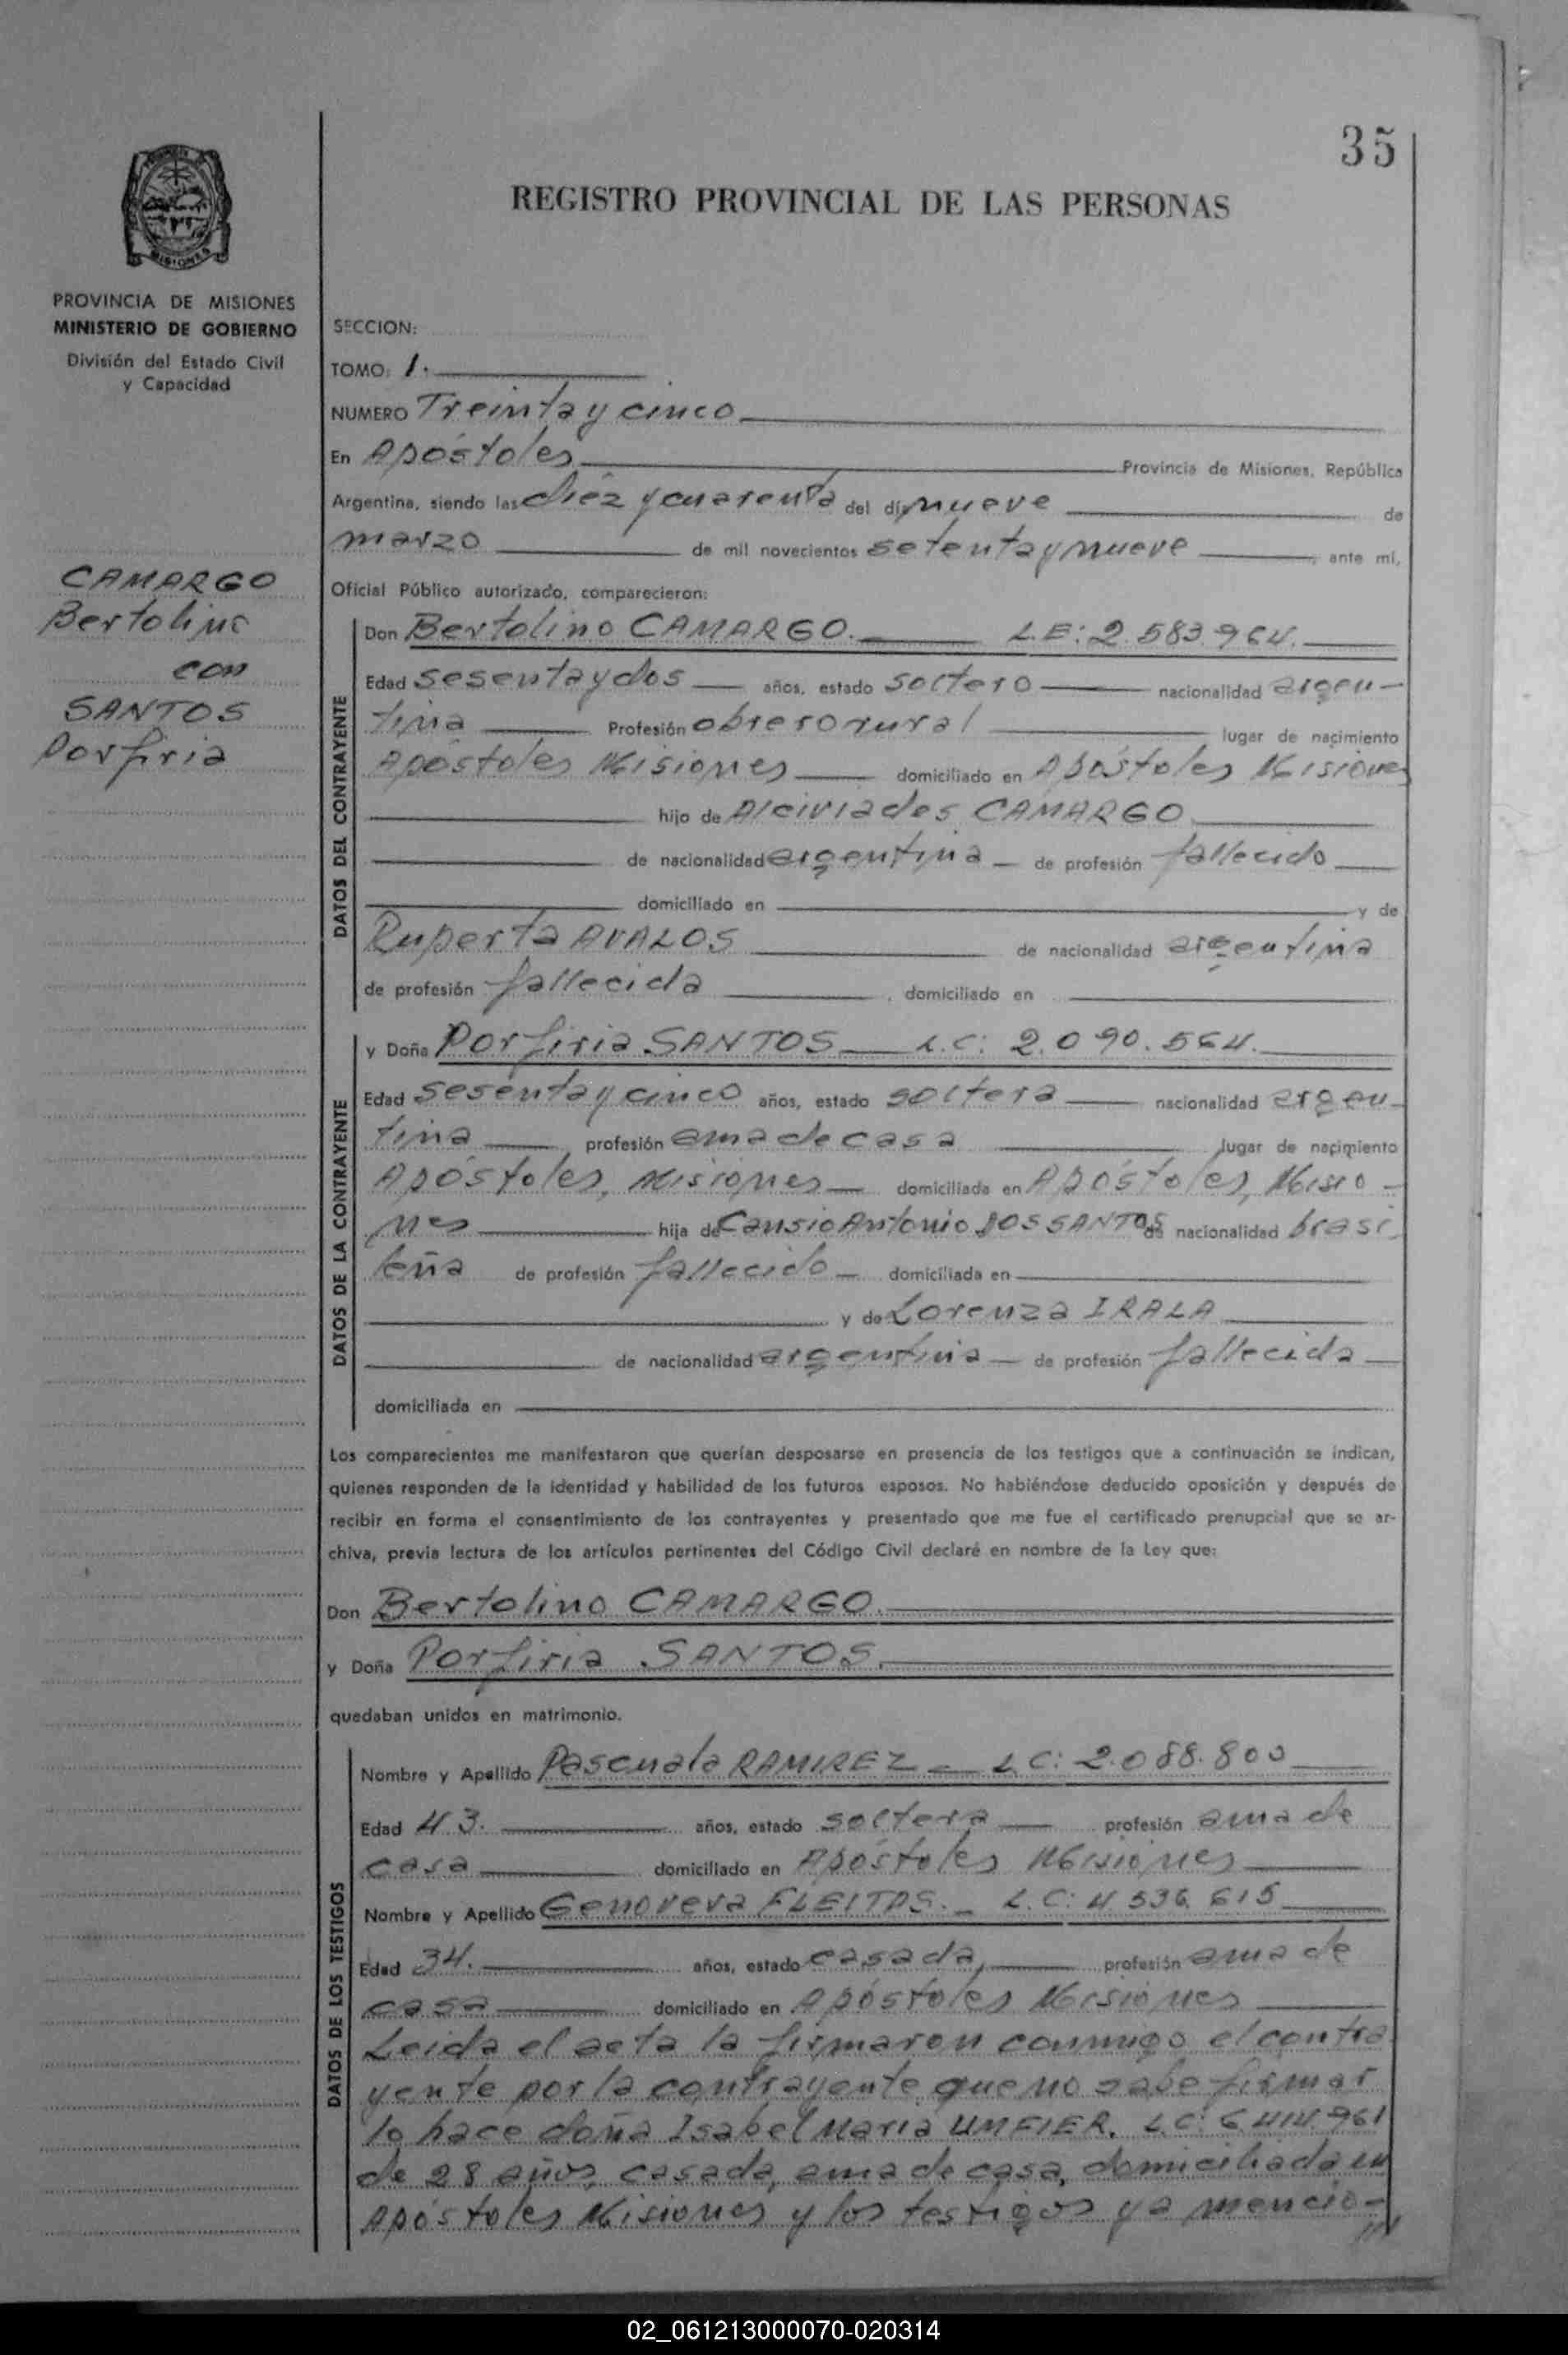 35
REGISTRO PROVINCIAL DE LAS PERSONAS
MISIONES
PROVINCIA DE MISIONES
MINISTERIO DE GOBIERNO
División del Estado Civil
y Capacidad
CAMARGO
Bertolino
con
SANTOS
Porfiria
SECCION:
TOMO: 1.
NUMERO Treinta y cinco
En Apóstoles Provincia de Misiones, República
Argentina, siendo las diéz y cuarenta del día nueve de
marzo de mil novecientos setenta y nueve, ante mí,
Oficial Público autorizado, comparecieron:
DATOS DEL CONTRAYENTE
Don Bertolino CAMARGO. L.E: 2.583.964.
Edad sesenta y dos años, estado soltero nacionalidad argen-
tina Profesión obrero rural lugar de nacimiento
Apóstoles Misiones domiciliado en Apóstoles Misiones
hijo de Alciviades CAMARGO
de nacionalidad argentina de profesión fallecido
domiciliado en y de
Ruperta AVALOS de nacionalidad argentina
de profesión fallecida, domiciliado en
DATOS DE LA CONTRAYENTE
y Doña Porfiria SANTOS L.C: 2.090.564.
Edad sesenta y cinco años, estado soltera nacionalidad argen-
tina profesión ama de casa lugar de nacimiento
Apóstoles, Misiones domiciliada en Apóstoles, Misio-
nes hija de Antonio DOS SANTOS de nacionalidad brasi
leña de profesión fallecido domiciliada en
y de Lorenza IRALA
de nacionalidad argentina de profesión fallecida
domiciliada en
Los comparecientes me manifestaron que querían desposarse en presencia de los testigos que a continuación se indican,
quienes responden de la identidad y habilidad de los futuros esposos. No habiéndose deducido oposición y después de
recibir en forma el consentimiento de los contrayentes y presentado que me fue el certificado prenupcial que se ar-
chiva, previa lectura de los artículos pertinentes del Código Civil declaré en nombre de la Ley que:
Don Bertolino CAMARGO.
y Doña Porfiria SANTOS.
quedaban unidos en matrimonio.
DATOS DE LOS TESTIGOS
Nombre y Apellido Pascuala RAMIREZ L.C: 2.088.800
Edad 43. años, estado soltera profesión ama de
casa domiciliado en Apóstoles Misiones
Nombre y Apellido Genoveva FLEITAS. L.C: 4.536.615
Edad 34. años, estado casada, profesión ama de
casa domiciliado en Apóstoles Misiones
Leida el acta la firmaron conmigo el contra
yente por la contrayente que no sabe firmar
lo hace doña Isabel Maria UMFIER. L.C: 6.414.961
de 28 años, casada, ama de casa, domiciliada en
Apóstoles Misiones y los testigos ya mencio-
///
02_061213000070-020314